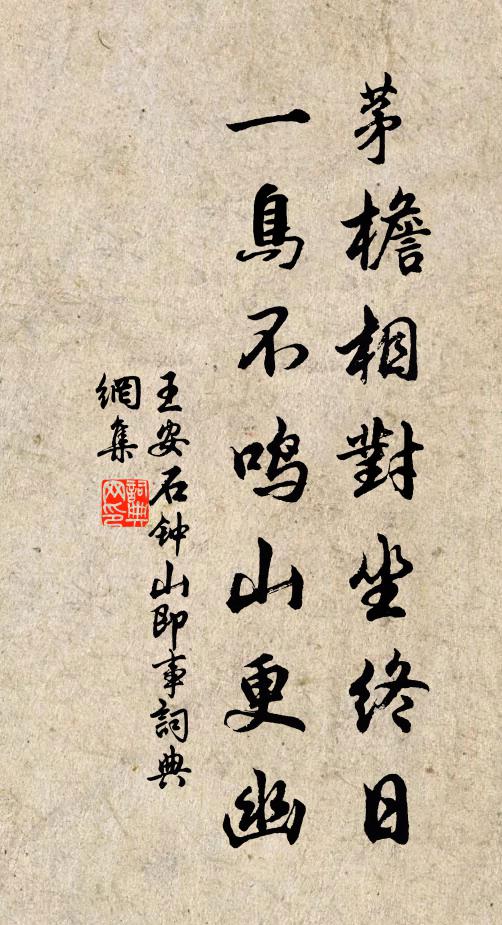 茅檐相對坐終日
一鳥不鳴山更幽
王安石钟山即事詞典
網集
詞典
网印